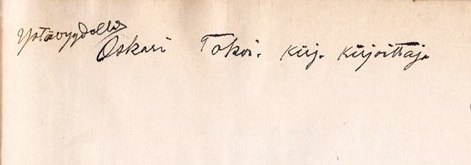 Ystävyydellä
Oskari Tokoi. Kirj. Kirjoittaja